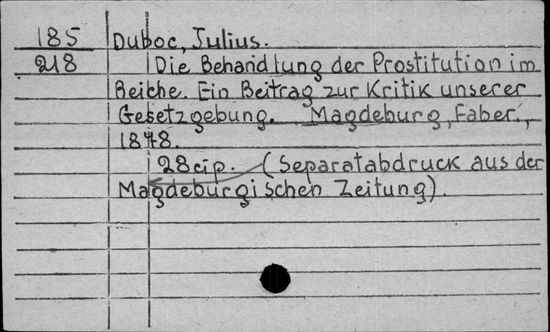 185 Duboc, Julius.
218 Die Behandlung der Prostitution im
Reiche. Ein Beitrag zur Kritik unserer
Gesetzgebung. Magdeburg, Faber.,
1878.
28 cip. (Separatabdruck aus der
Magdeburgischen Zeitung).